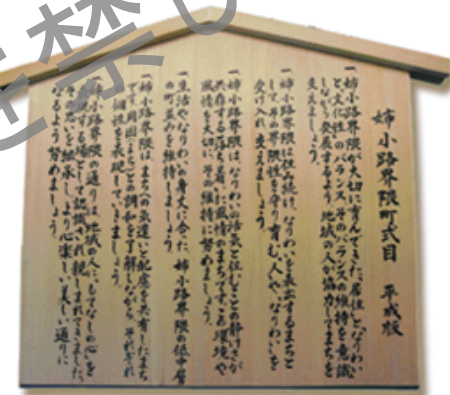 姉小路界隈町式目 平成版
一 姉小路界隈が大切に育んできた、居住と、なりわい
と文化性のバランス、そのバランスの維持を意識
しながら、発展するよう地域の人が協力してまちを
支えましょう。
一 姉小路界隈は住み続け、なりわいを表出するまちと
して、その界隈性を守り育む、人や、なりわいを
受け入れ、支えましょう。
一 姉小路界隈は、なりわいの活気と住むことの静けさが
共存する落ち着いた風情のまちです。この環境や
風情を大切に、その維持に努めましょう。
一 生活やなりわいの身丈に合った、姉小路界隈の低中層
の町並みを維持しましょう。
一 姉小路界隈は、まちへの気遣いと配慮を共有したまち
です。周囲のまちとの調和を了解しながら、それぞれ
個性を表現していきましょう。
姉小路界隈の通りは、地域の人々にもてなしの心を
する場として認識され、親しまれてきました。
を継承し、より心楽しい美しい通りに
なるよう努めましょう。
を禁じ